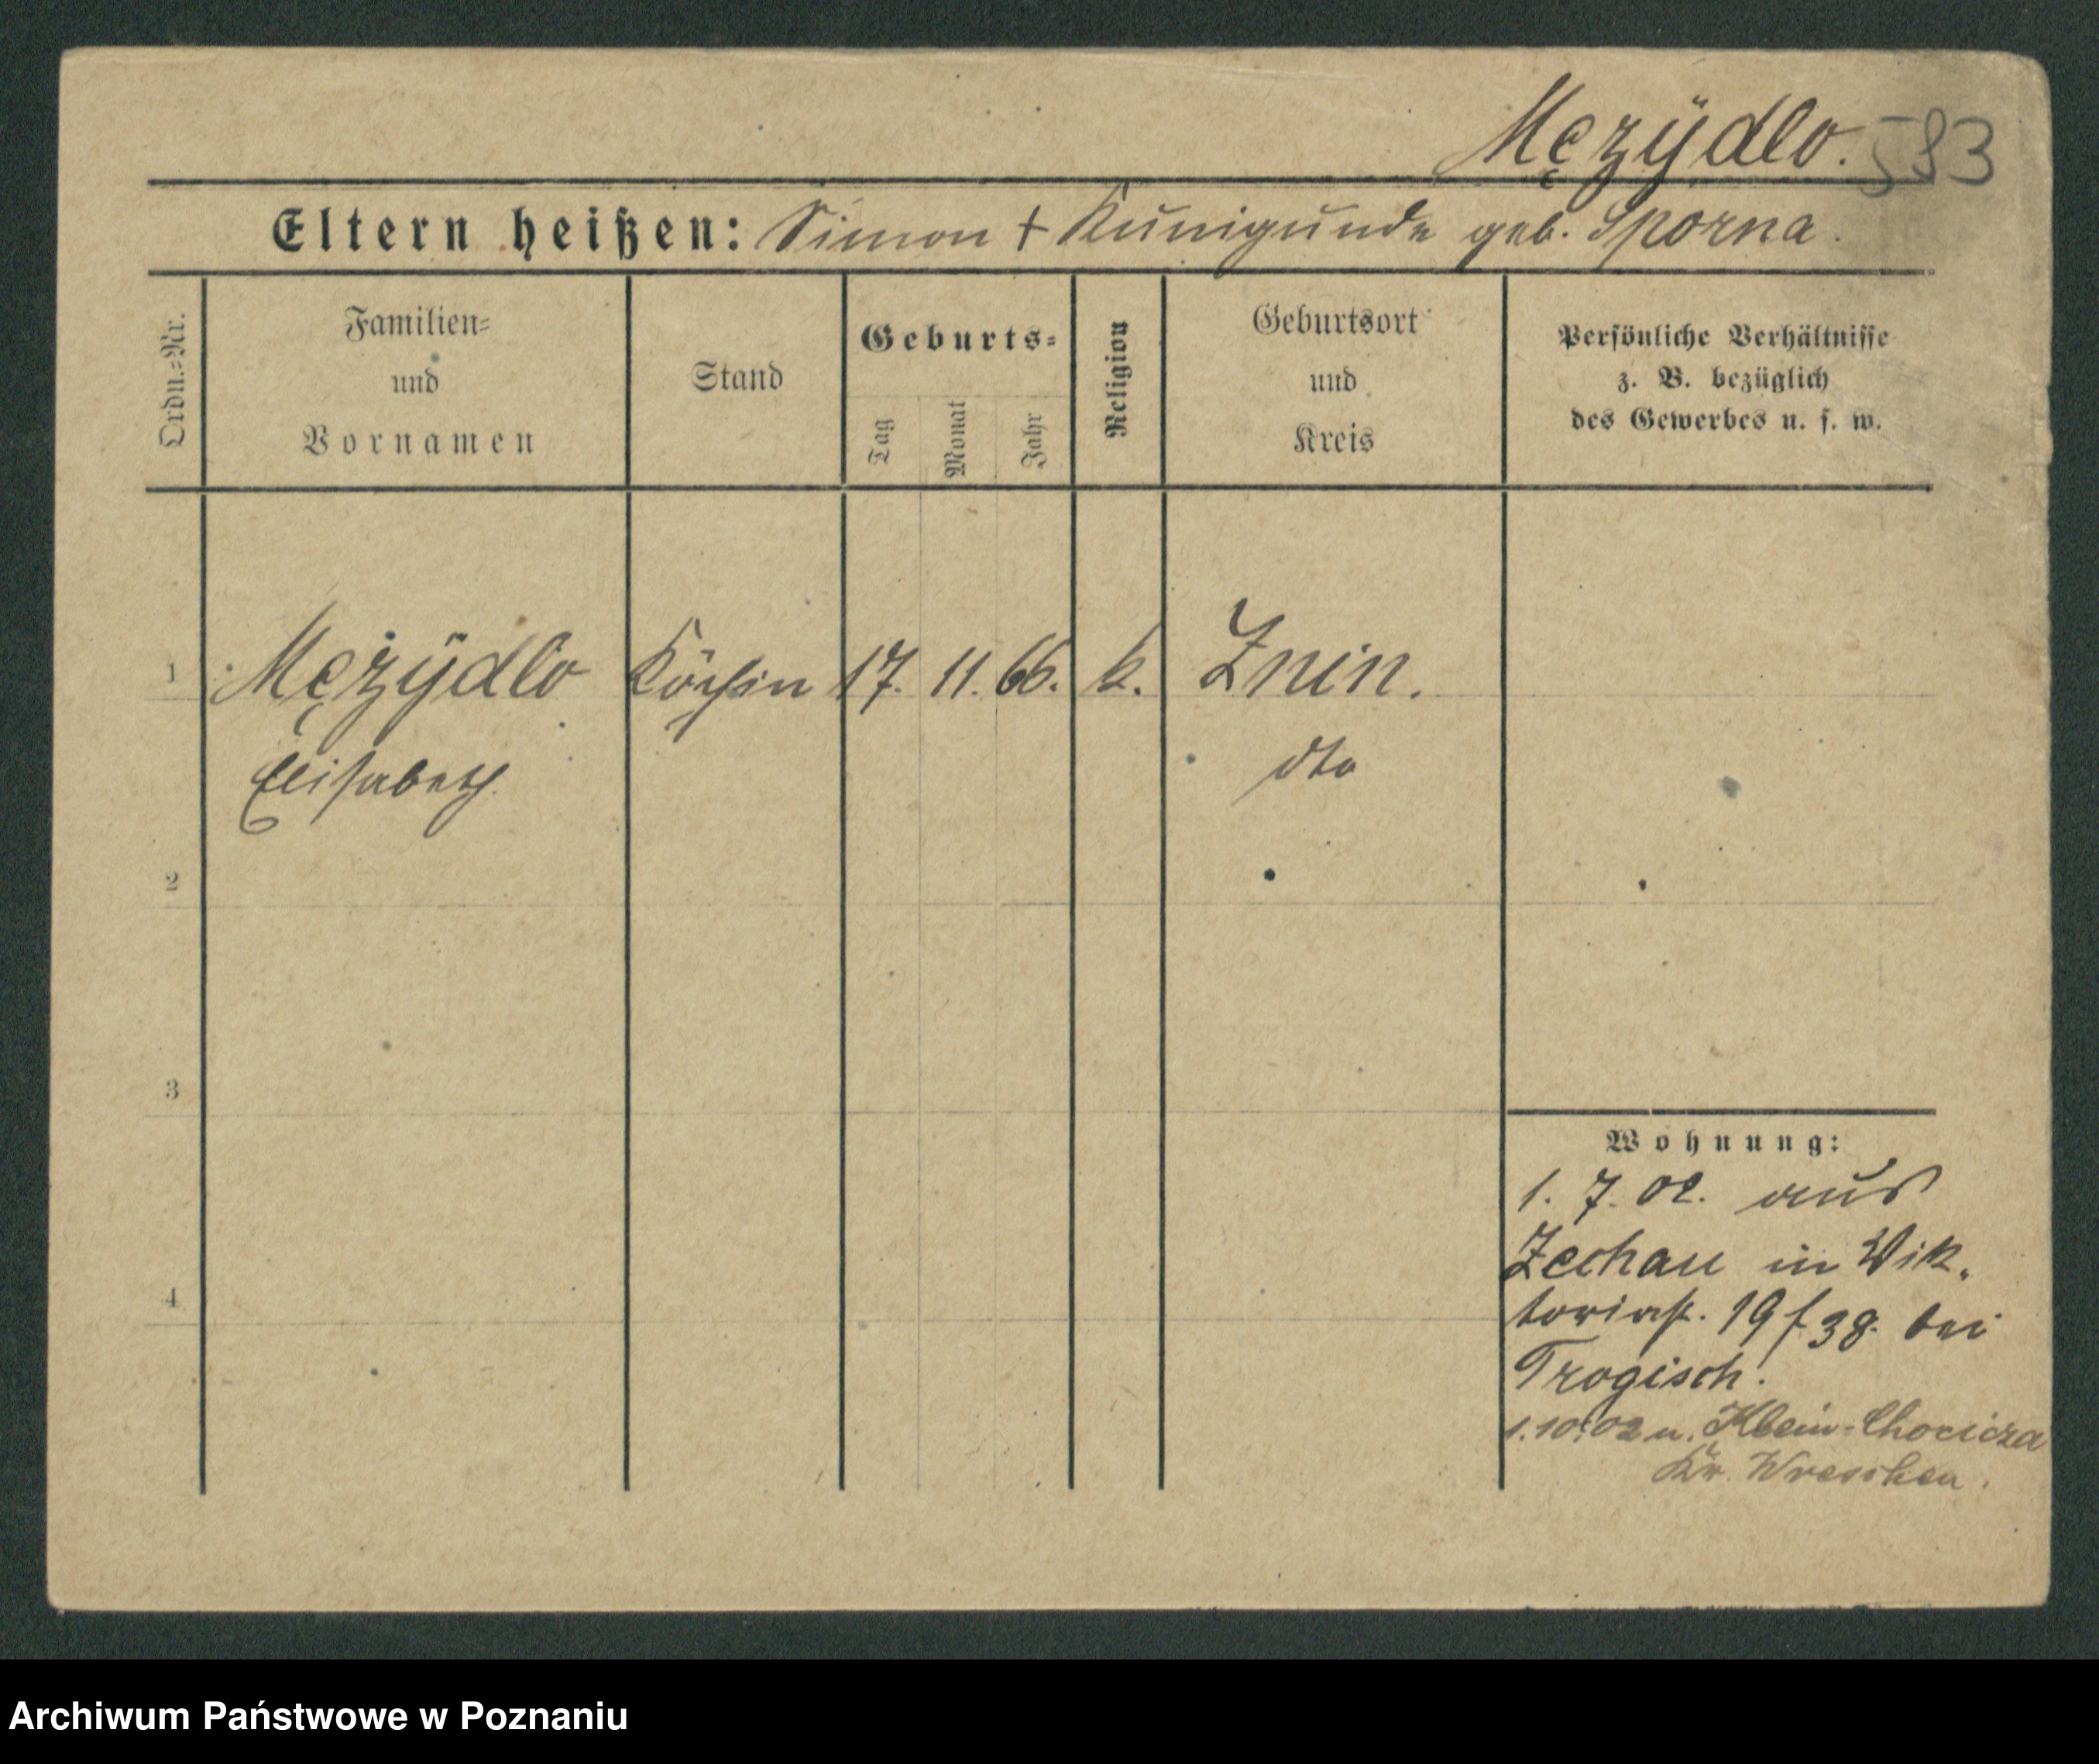 Męzÿdlo. 583
Eltern heißen: Simon + Kunigunde geb. Sporna.
Ordn.=Nr.
Familien=
und
Vornamen
Stand
Geburts=
Tag
Monat
Jahr
Religion
Geburtsort
und
Kreis
Persönliche Verhältnisse
z. B. bezüglich
des Gewerbes u. s. w.
1 Mężÿdlo Köchin 17. 11. 66. k. Znin.
Elisabeth. dto
2
3
4
Wohnung:
1. 7. 02. aus
Zechau in Vik-
toriast. 19 f 38. bei
Trogisch.
1.10.02 n. Klein-Chocicza
Kr. Wreschen.
Archiwum Państwowe w Poznaniu